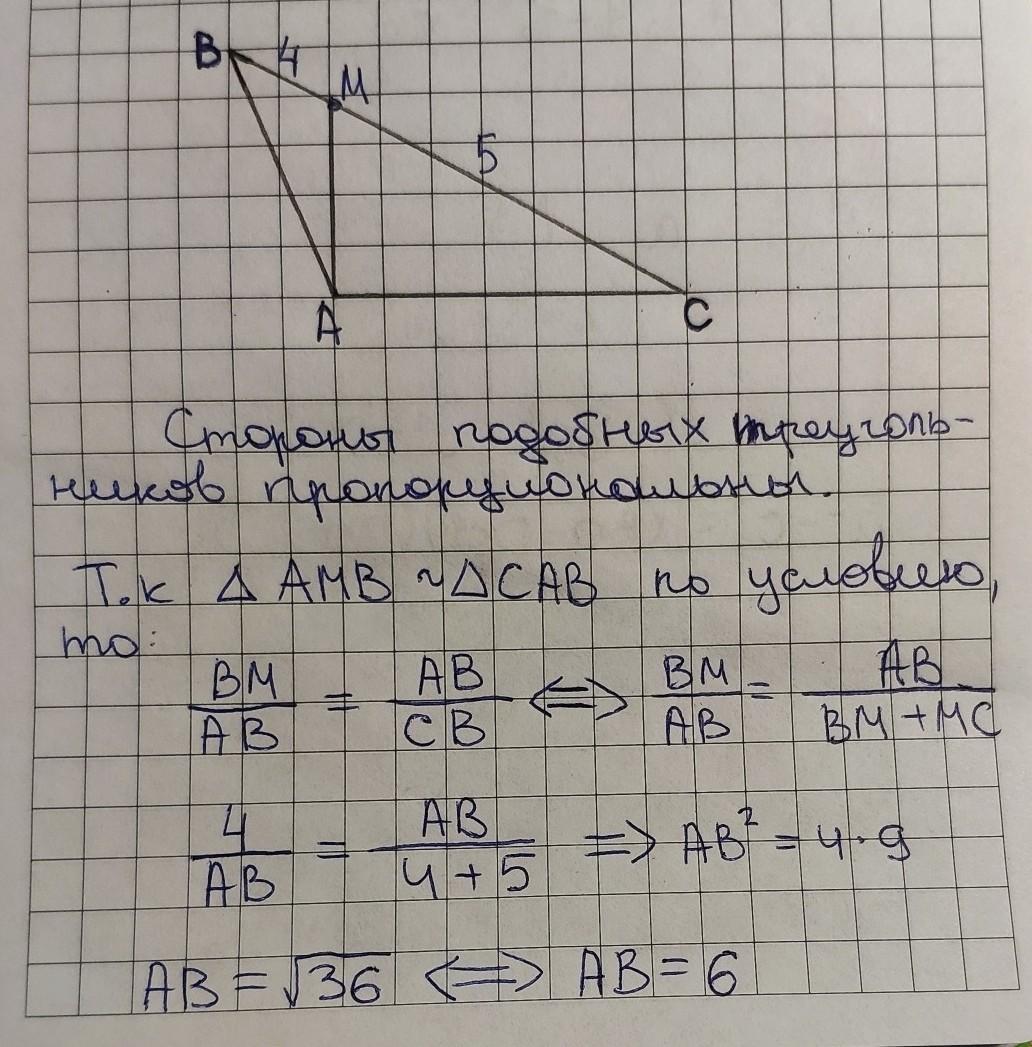 B 4 M
5
A C
Стороны подобных треуголь-
ников пропорциональны.
Т.к △AMB ~ △CAB по условию,
то:
BM/AB = AB/CB ⟺ BM/AB = AB/BM + MC
4/AB = AB/4 + 5 ⟹ AB² = 4·9
AB = √36 ⟺ AB = 6